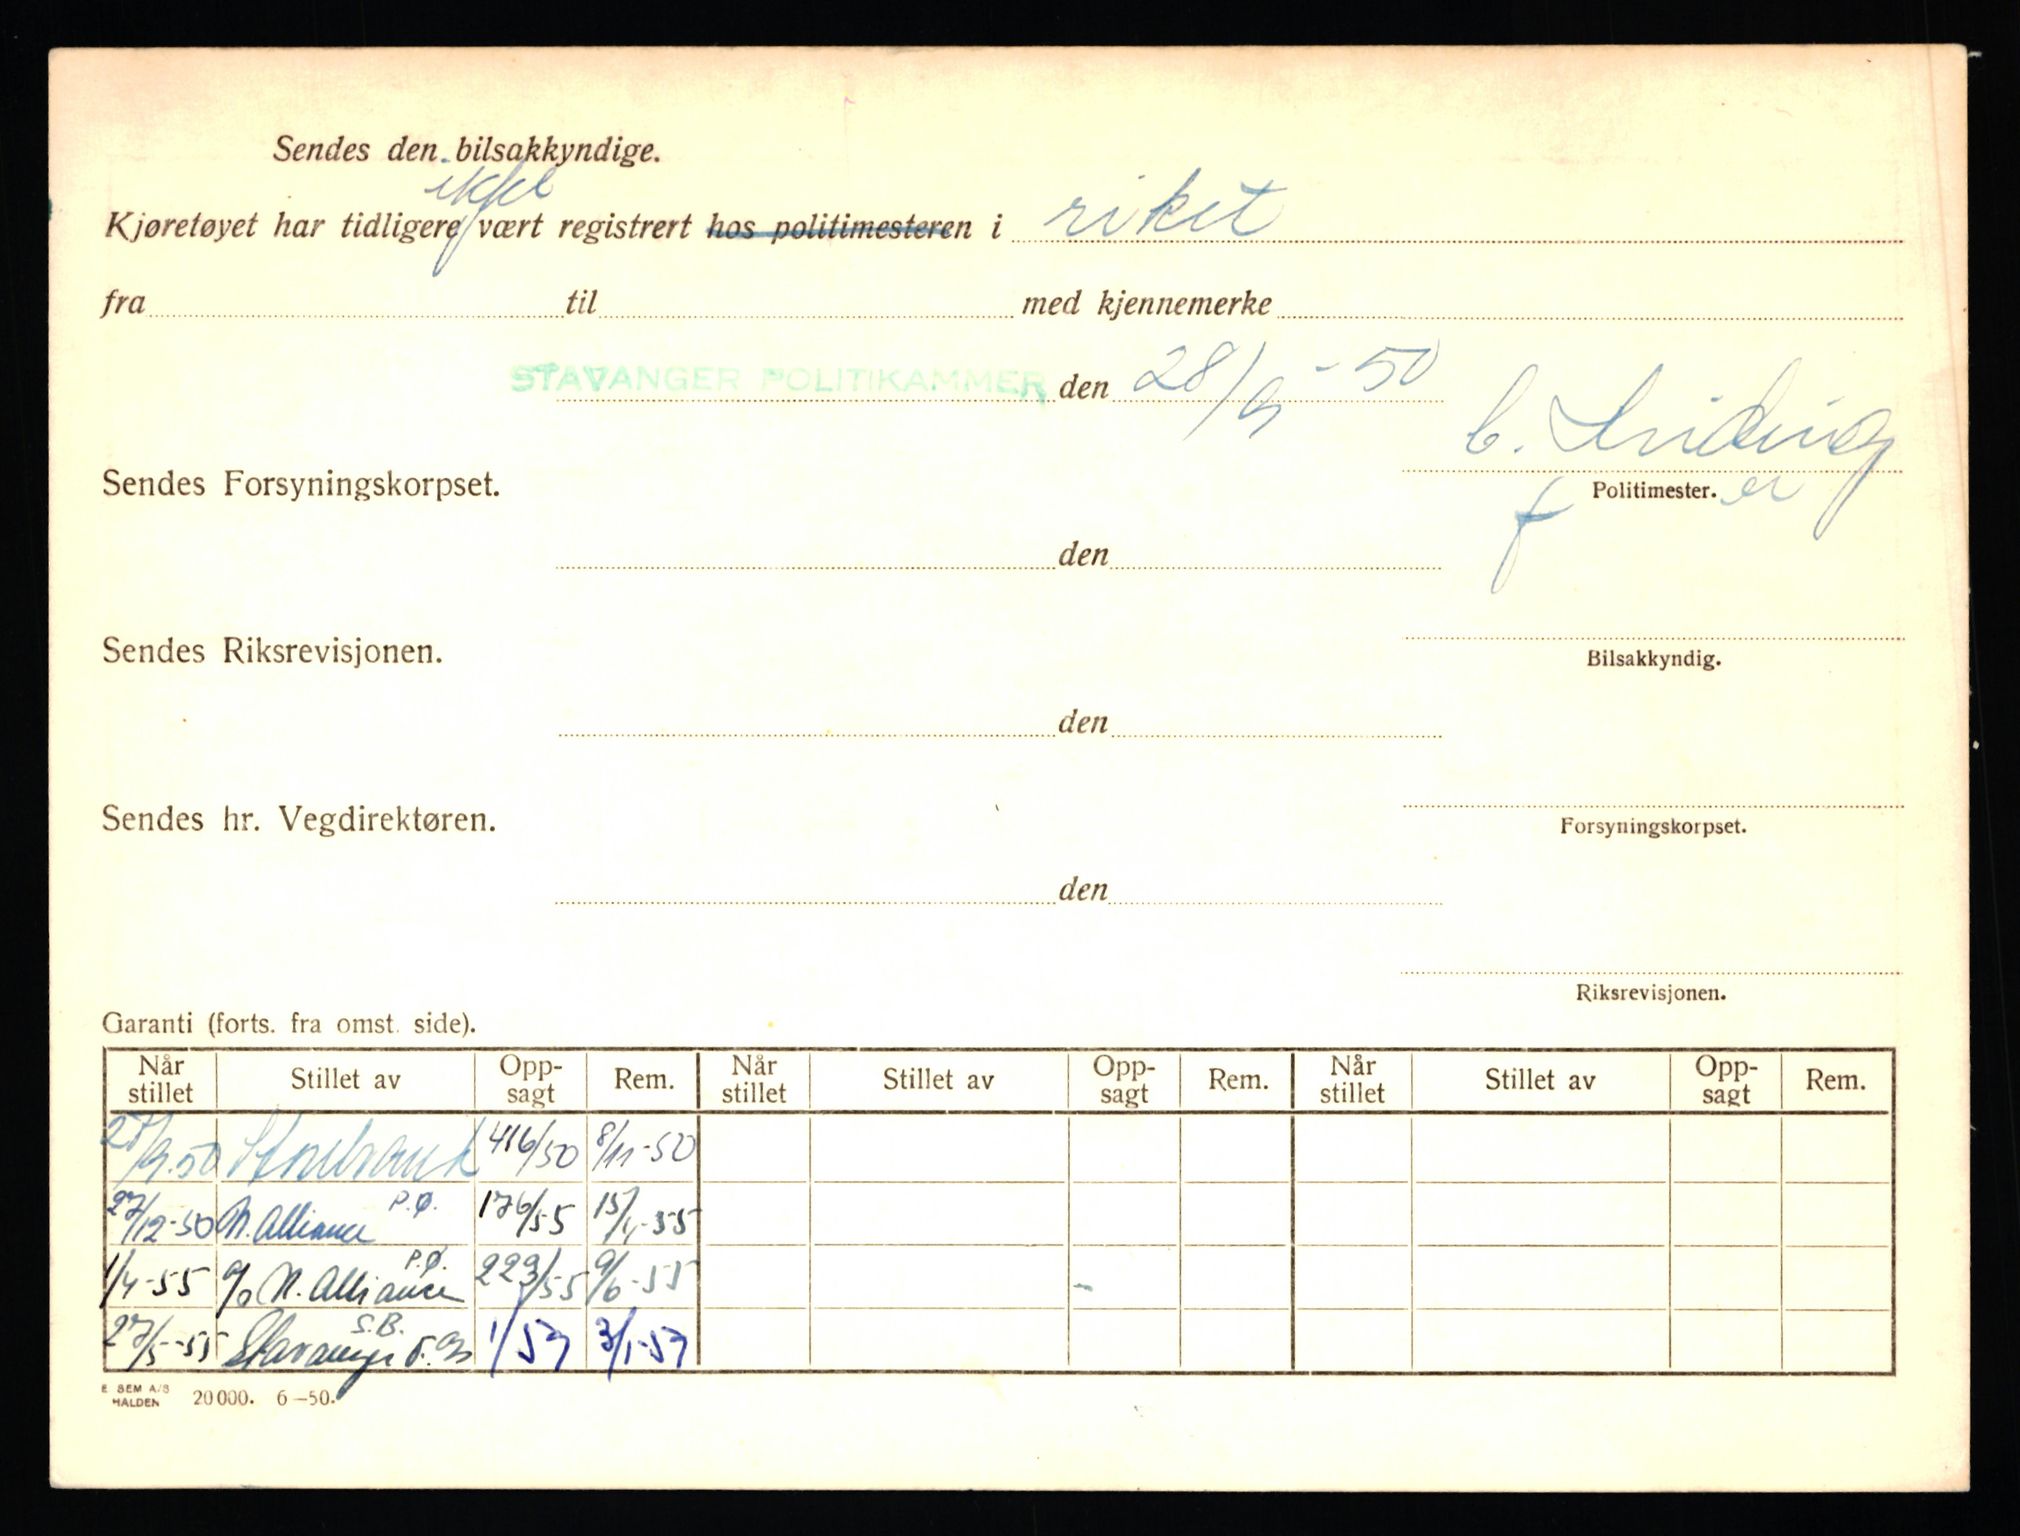 Sendes den bilsakkyndige.
ikke
Kjøretøyet har tidligere vært registrert hos politimesteren i riket
fra til med kjennemerke
STAVANGER POLITIKAMMER den 28/9 - 50
Sendes Forsyningskorpset.
Politimester.
den
Sendes Riksrevisjonen.
Bilsakkyndig.
den
Sendes hr. Vegdirektøren.
Forsyningskorpset.
den
Riksrevisjonen.
Garanti (forts. fra omst. side).
Når stillet Stillet av Opp-sagt Rem. Når stillet Stillet av Opp-sagt Rem. Når stillet Stillet av Opp-sagt Rem.
28/9.50 Storebrand 416/50 8/11-50
27/12-50 N. Alliance P.Ø. 176/55 15/4-55
1/4-55 N. Alliance P.Ø. 223/55 9/6-55
27/5-55 Stavanger S.B. 1/57 3/1-57
E SEM A/S HALDEN 20000. 6—50.